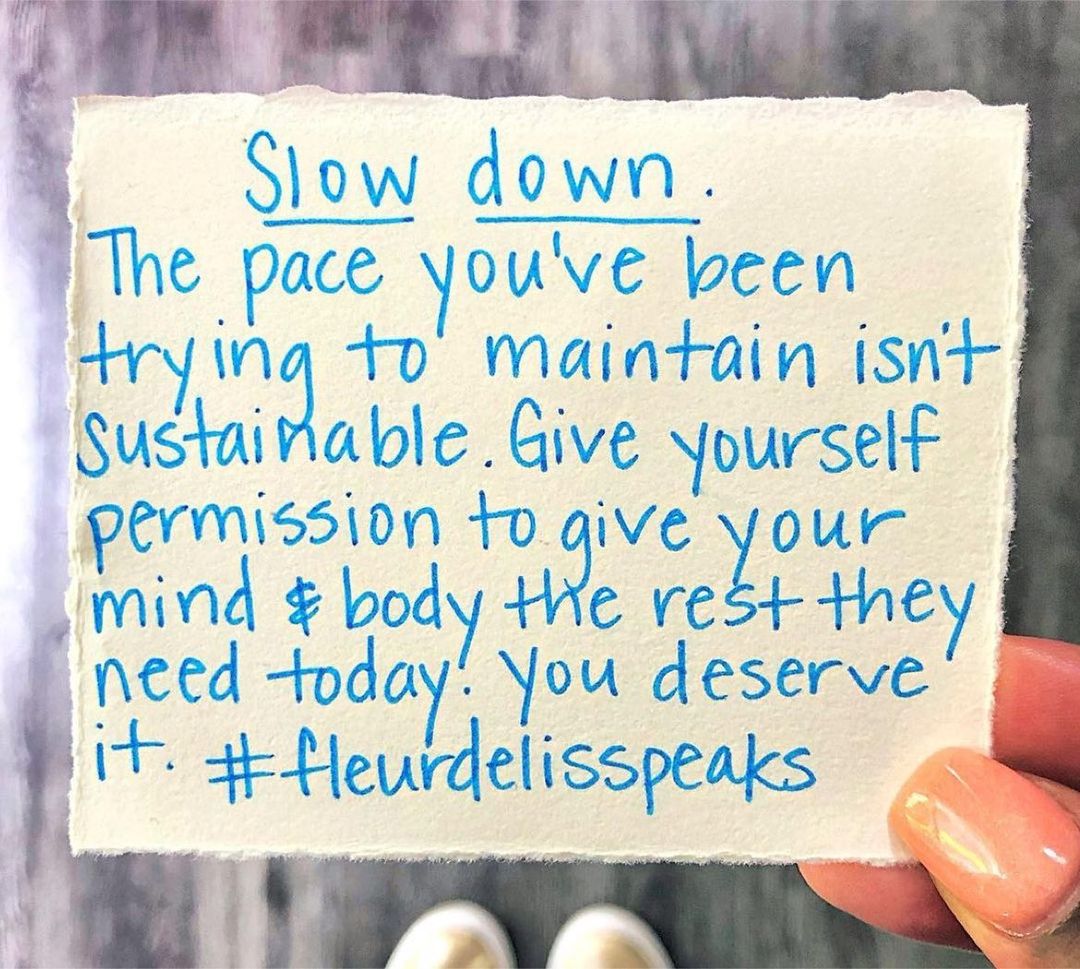 Slow down.
The pace you've been
trying to maintain isn't
sustainable. Give yourself
permission to give your
mind & body the rest they
need today! You deserve
it. #fleurdelisspeaks